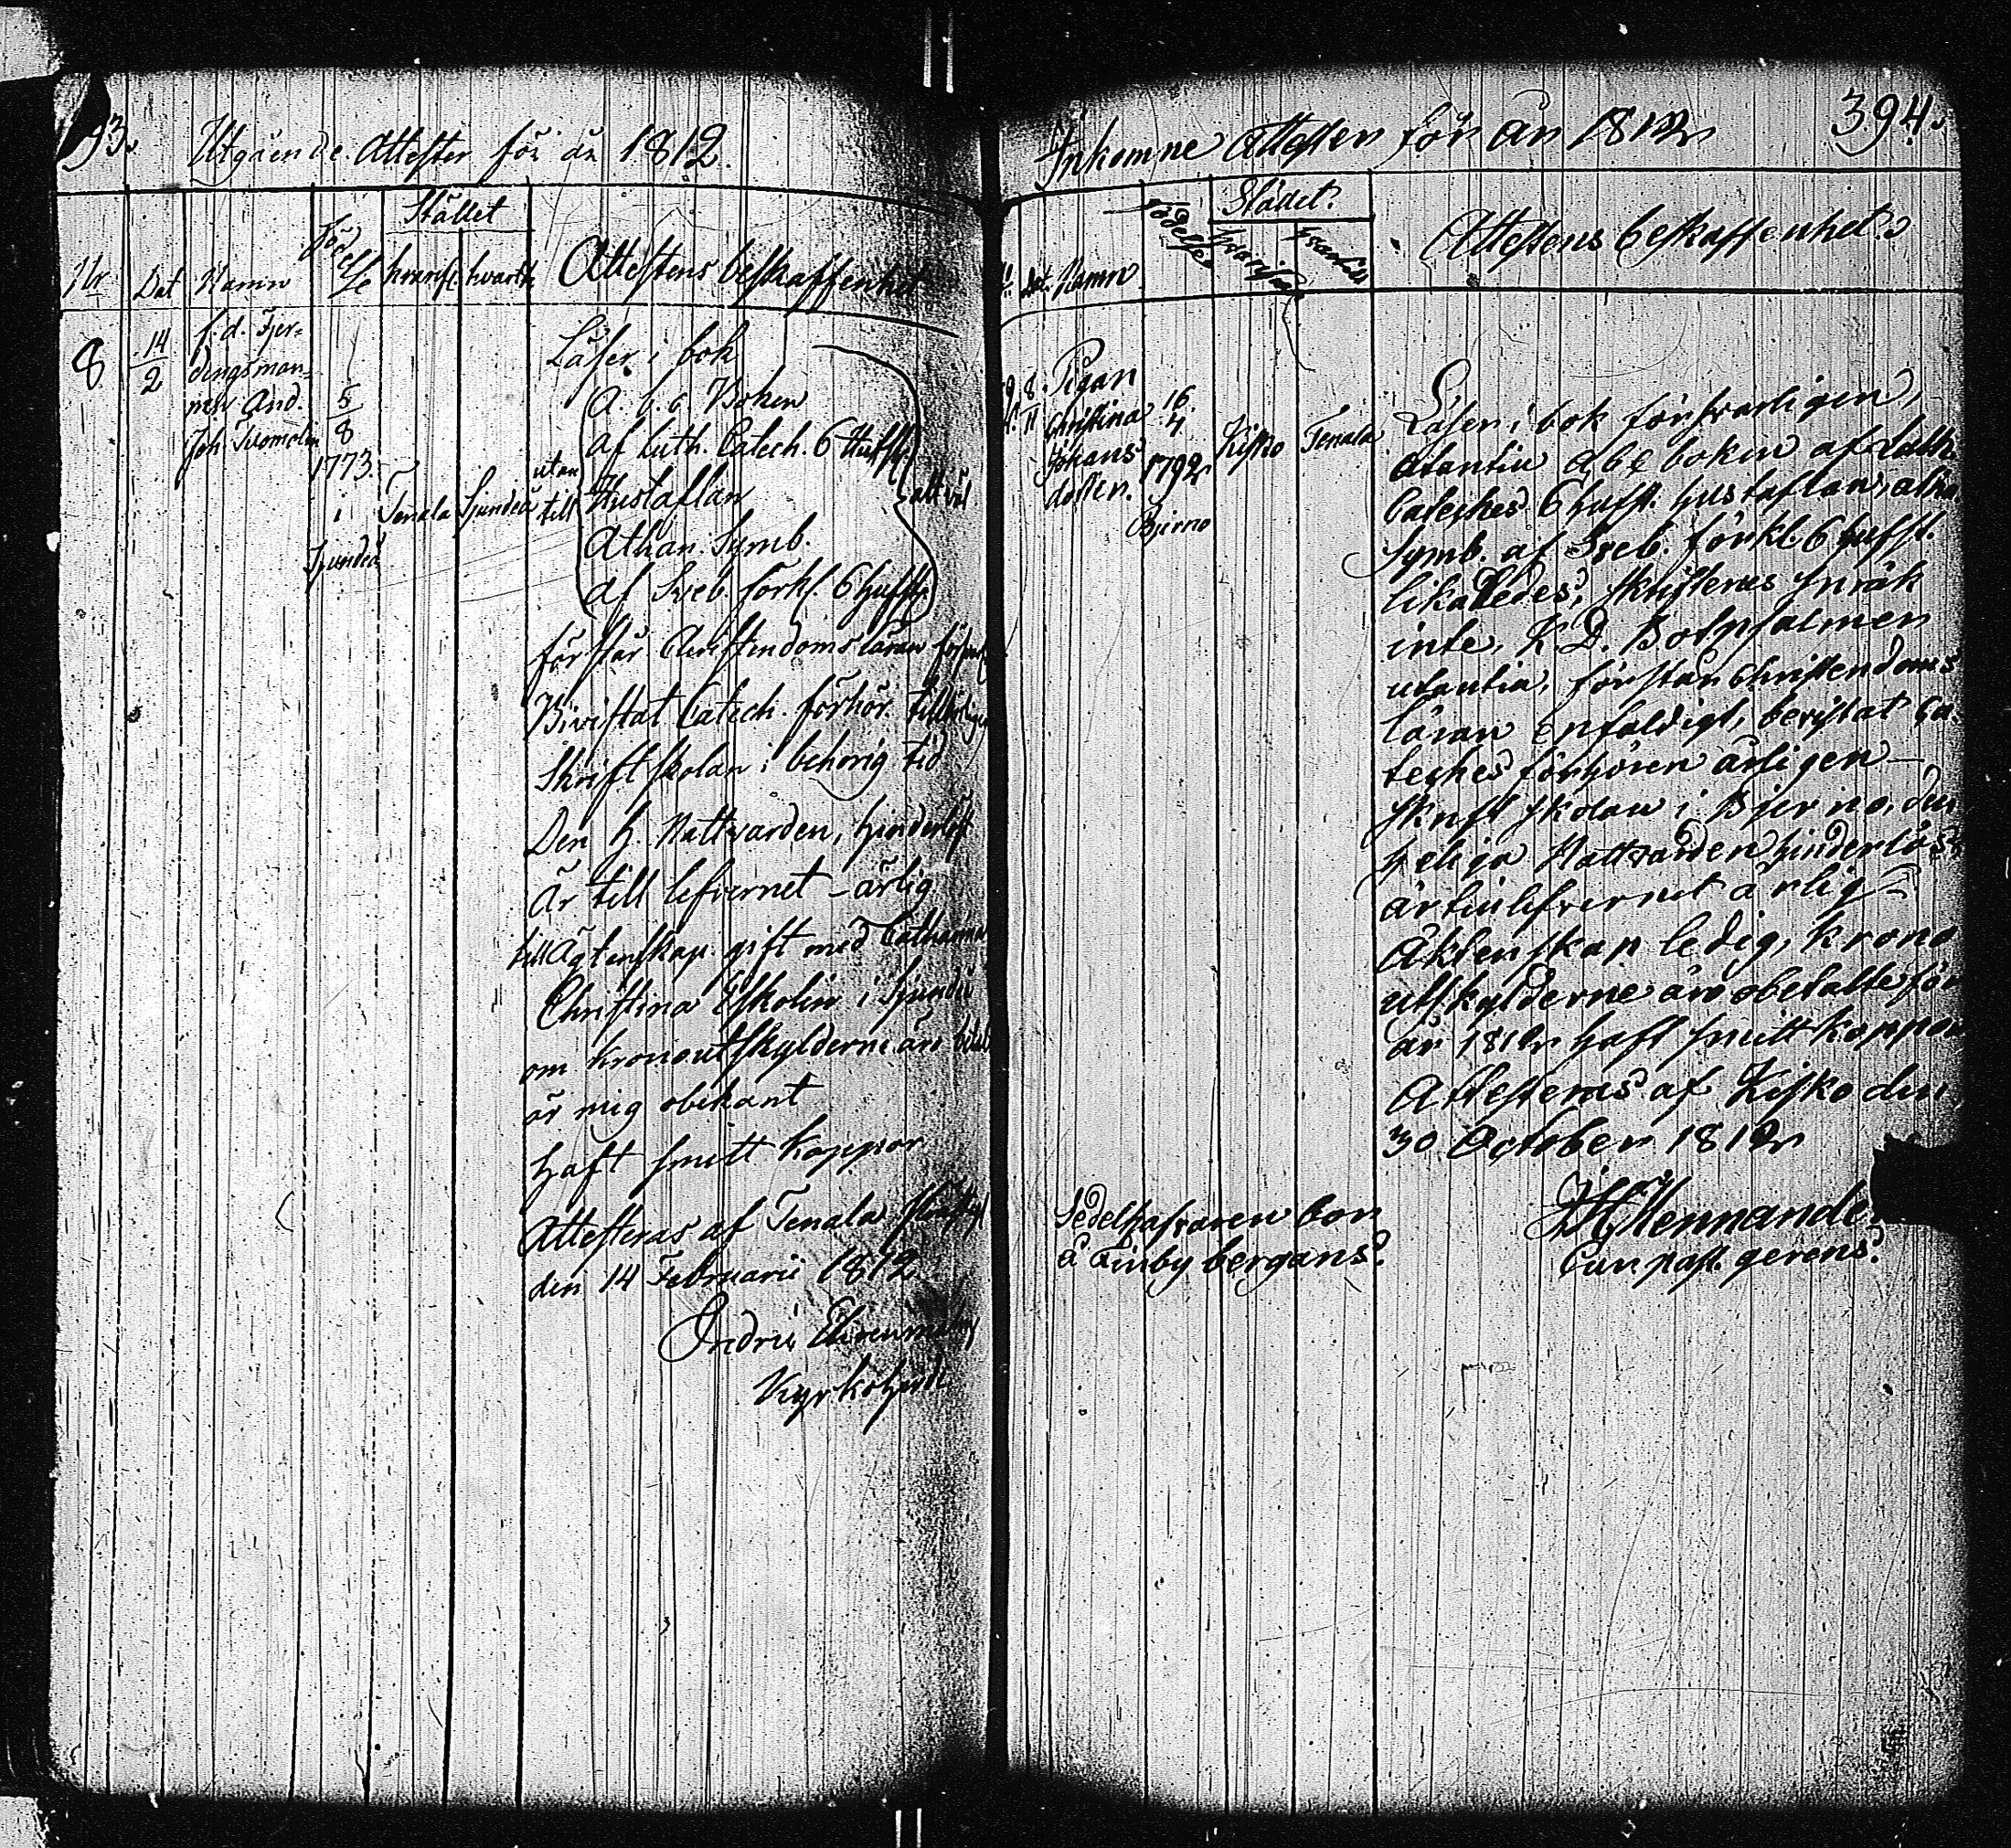 93.
Utgående Attester för år 1812.
Stället
Nr Dat Namn Födelse hvarifr. hvarth. Attestens beskaffenhet
8 14/2 f.d. Fjer-
dingsman-
nen And.
Joh
5/8
1773.
i
Sjundeå
Tenala Sjundeå
Läser i bok
A. b. c. Boken
af Luth. Catech. 6 Hufst.
utan till Hustaflan
Athan. Symb.
af Sveb. Förkl. 6 Hufst.
allt väl
förstår Christendomsläran
Bivistat Catech. förhör
Skriftskolan i behörig tid
Den H. Nattvarden, hinderlöst
Är till lefvernet – ärlig
till Ägtenskap gift med Catharina
Christina Eskolin i Sjundeå
om kronoutskylderne äro betalt
är mig obekant
haft smitt koppor
Attesteras af Tenala
den 14 Februarii 1812
Kyrkoherde
394.
Inkomne Attester för år 1812
Stället.
Dat. Namn Födelse hvarifrån Attestens beskaffenhet
8.
11
Pigan
Christina
Johans
dotter.
16.
4
1792
Bjerno
Kisko Tenala
Läser i bok försvarligen,
utantill abc boken af Luth.
Cateches 6 hufst. hustaflan, athan.
Symb. af Sveb. förkl. 6 hufst.
likaledes, skriftenes språk
inte, K. D. Botpsalmer
utantill, förstår Christendoms
läran enfaldigt, bevistat Ca-
teches förhören årligen –
skrift skolan i Bjerno, den
heliga Nattvarden hinderlöst
är till lefvernet ärlig
Äktenskap ledig, krono
utskylderne äro obetalte för
år 1812 haft smitt koppor
Attesteras af Kisko den
30 October 1812
Sedelhafvaren bor
å Finby bergans.
Cur past. gerens.